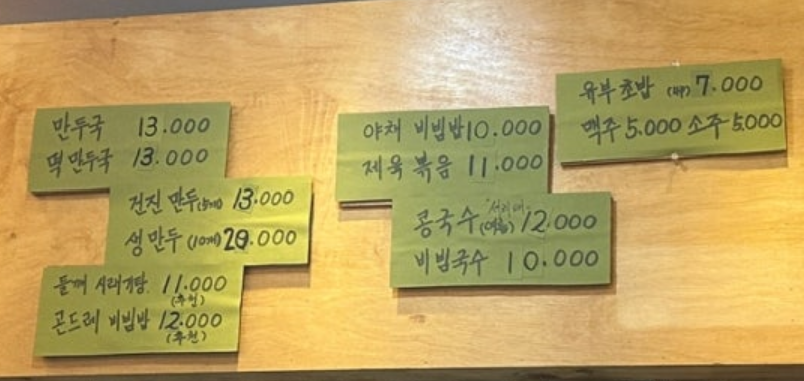 만두국 13.000
떡만두국 13.000
건진 만두(5개) 13.000
생만두 (10개) 20.000
들깨 시래기탕 11.000
(추천)
곤드레 비빔밥 12.000
(추천)
야채 비빔밥 10.000
제육 볶음 11.000
서리태
콩국수(여름) 12.000
비빔국수 10.000
유부초밥 7.000
맥주 5.000 소주 5.000